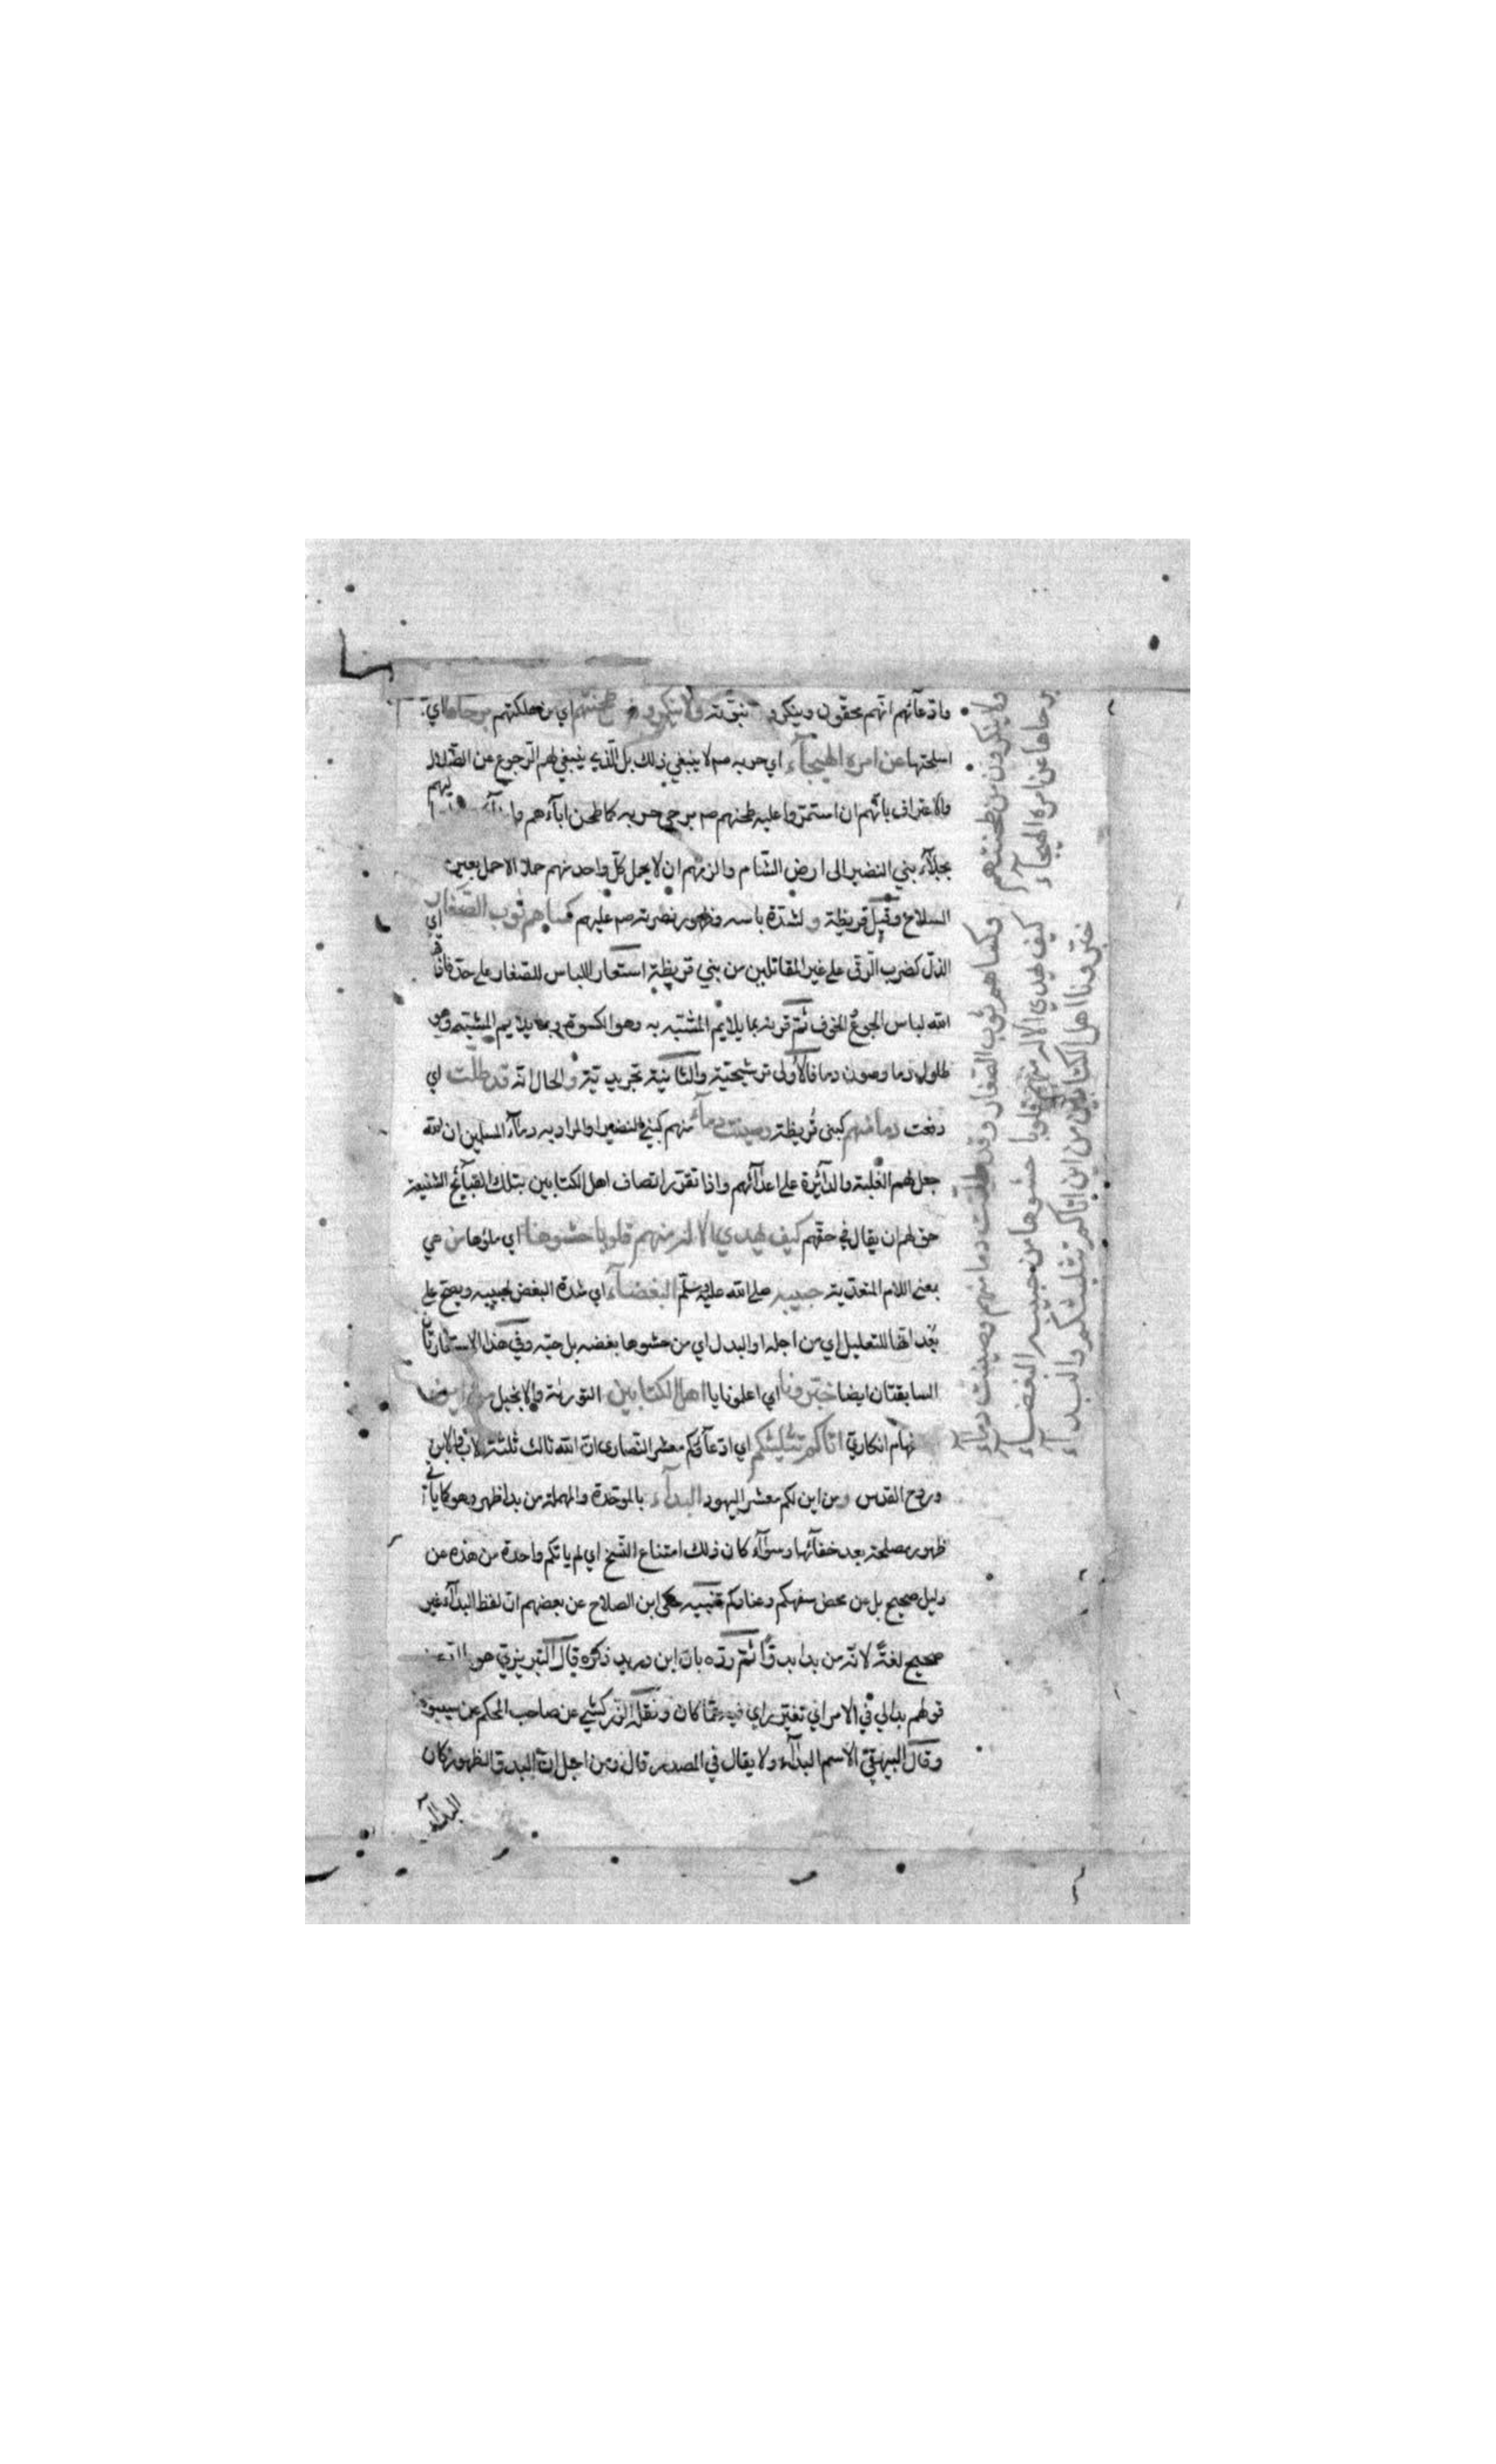 وادعآئهم انهم محقون وينكرو نبوته ولا ينكرون من طحنتهم اي من هلكتهم برحاها اي
اسلحتها عن امره الهيجآء اي حربه صم لا ينبغي ذلك بل الذي ينبغي لهم الرجوع عن الضلال
والاعتراف بانهم ان استمروا عليه طحنهم صم برحي حربه كما طحن ابآءهم
بجلآء بني النضير الى ارض الشام والزمهم ان لا يحمل كل واحد منهم حملا الا حمل بعير
السلاح وقتل قريظة ولشدة باسه وظهور نصرته صم عليهم كساهم ثوب الصغار اي
الذل كضرب الرق على غير المقاتلين من بني قريظة استعار اللباس للصغار على حد فاذاقها
الله لباس الجوع والخوف ثم قرنه بما يلايم المشبه به وهو الكسوة وبما يلايم المشبه وهو
طلول دما وصون دما فالاولى ترشيحية والثانية تجريدية والحال انه قد طلت اي
دفعت دمآ منهم كبني قريظة وصينت دمآء منهم كبني النضير او المراد به دمآء المسلمين ان الله
جعل لهم الغلبة والدآئرة على اعدآئهم واذا تقرر اتصاف اهل الكتابين بتلك القبآئح الشنيعة
حق لهم ان يقال في حقهم كيف يهدي الاله منهم قلوبا حشوها اي ملؤها من هي
بمعنى اللام المتعدية حبيبه صلى الله عليه وسلم البغضآء اي شدة البغض لحبيبه ويصح على
بعد انها للتعليل اي من اجله او البدل اي من حشوها بغضه بل حبه وفي هذا الاستعارتان
السابقتان ايضا خبرونا اي اعلمونا يا اهل الكتابين التورية والانجيل من اين
انكاري اتاكم تثليثكم اي ادعآؤكم معشر النصارى ان الله ثالث ثلثة الاب والابن
وروح القدس ومن اين لكم معشر اليهود البدآء بالموحدة والمهملة من بدا ظهر وهو كما ياتي
ظهور مصلحة بعد خفآئها وسوآء كان ذلك امتناع النسخ اي لم ياتكم واحدة من هذه عن
دليل صحيح بل عن محض سفهكم وعنادكم تنبيه حكى ابن الصلاح عن بعضهم ان لفظ البدآء غير
صحيح لغة لانه من بدا بدوا ثم رده بان ابن دريد ذكره قال التبريزي هو
قولهم بدا لي في الامر اي تغير راي فيه عما كان ونقله الزركشي عن صاحب المحكم عن سيبويه
وقال البيهقي الاسم البدآء ولا يقال في المصدر قال ومن اجل ان البدو الظهور كان
البدآء
ولا ينكرون من طحنتهم
برحاها عن امره الهيجآء
وكساهم ثوب الصغار وقد طلت دما منهم وصينت دمآء
كيف يهدي الاله منهم قلوبا حشوها من حبيبه البغضآء
خبرونا اهل الكتابين من اين اتاكم تثليثكم والبدآء